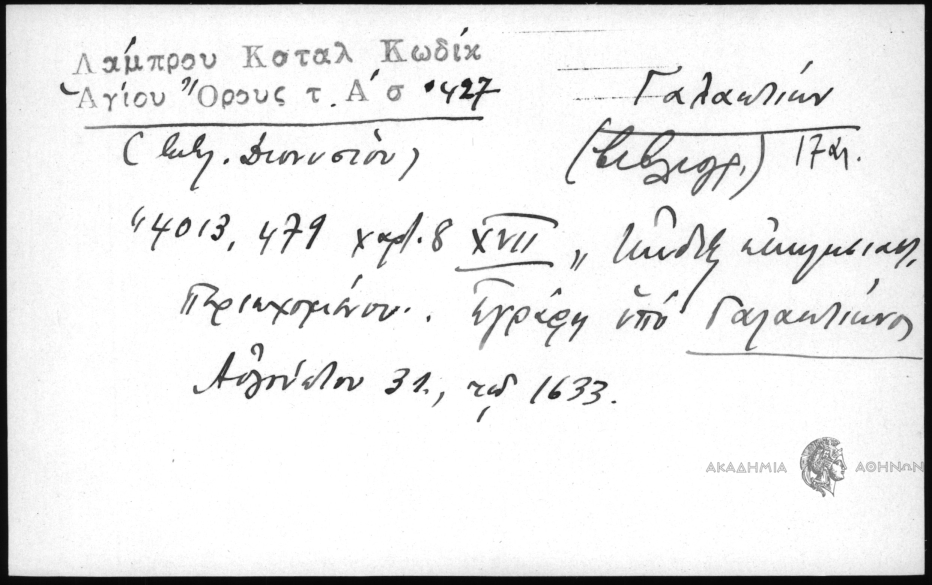 Λάμπρου Καταλ Κωδίκ
Ἁγίου Ὄρους τ. Α΄ σ. 427
Γαλακτίων
(Βιβλ. Διονυσίου)
(βιβλιογρ.) 17 αἰ.
"4013, 479 χαρτ. 8 XVII "Κῶδιξ ἐκκλησιαστ.
περιεχομένου. Ἐγράφη ὑπό Γαλακτίωνος
Αὐγούστου 31, τοῦ 1633.
ΑΚΑΔΗΜΙΑ ΑΘΗΝΩΝ